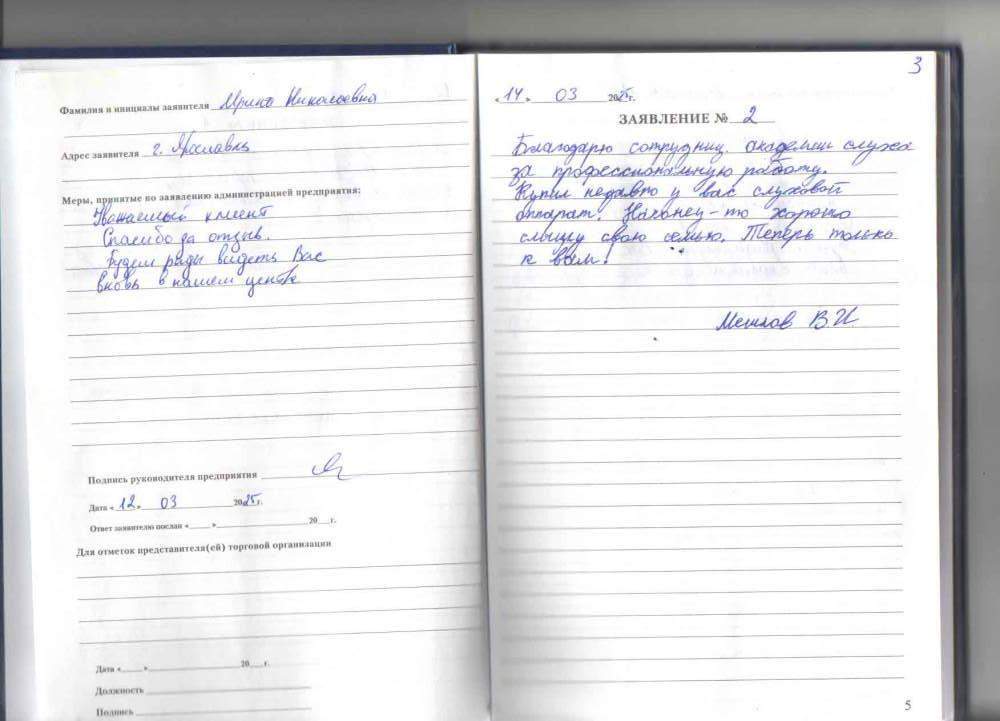 Фамилия и инициалы заявителя Ирина Николаевна
Адрес заявителя г. Ярославль
Меры, принятые по заявлению администрацией предприятия:
Уважаемый клиент
Спасибо за отзыв.
Будем рады видеть Вас
вновь в нашем центре
Подпись руководителя предприятия
Дата « 12 » 03 2025 г.
Ответ заявителю послан «____ »____ 20___г.
Для отметок представителя(ей) торговой организации
Дата «____ »____ 20___г.
Должность
Подпись
3
« 14 » 03 2025 г.
ЗАЯВЛЕНИЕ № 2
Благодарю сотрудниц. академии слуха
за профессиональную работу.
Купил недавно у вас слуховой
аппарат. Наконец-то хорошо
слышу свою семью. Теперь только
к вам!
В И
5